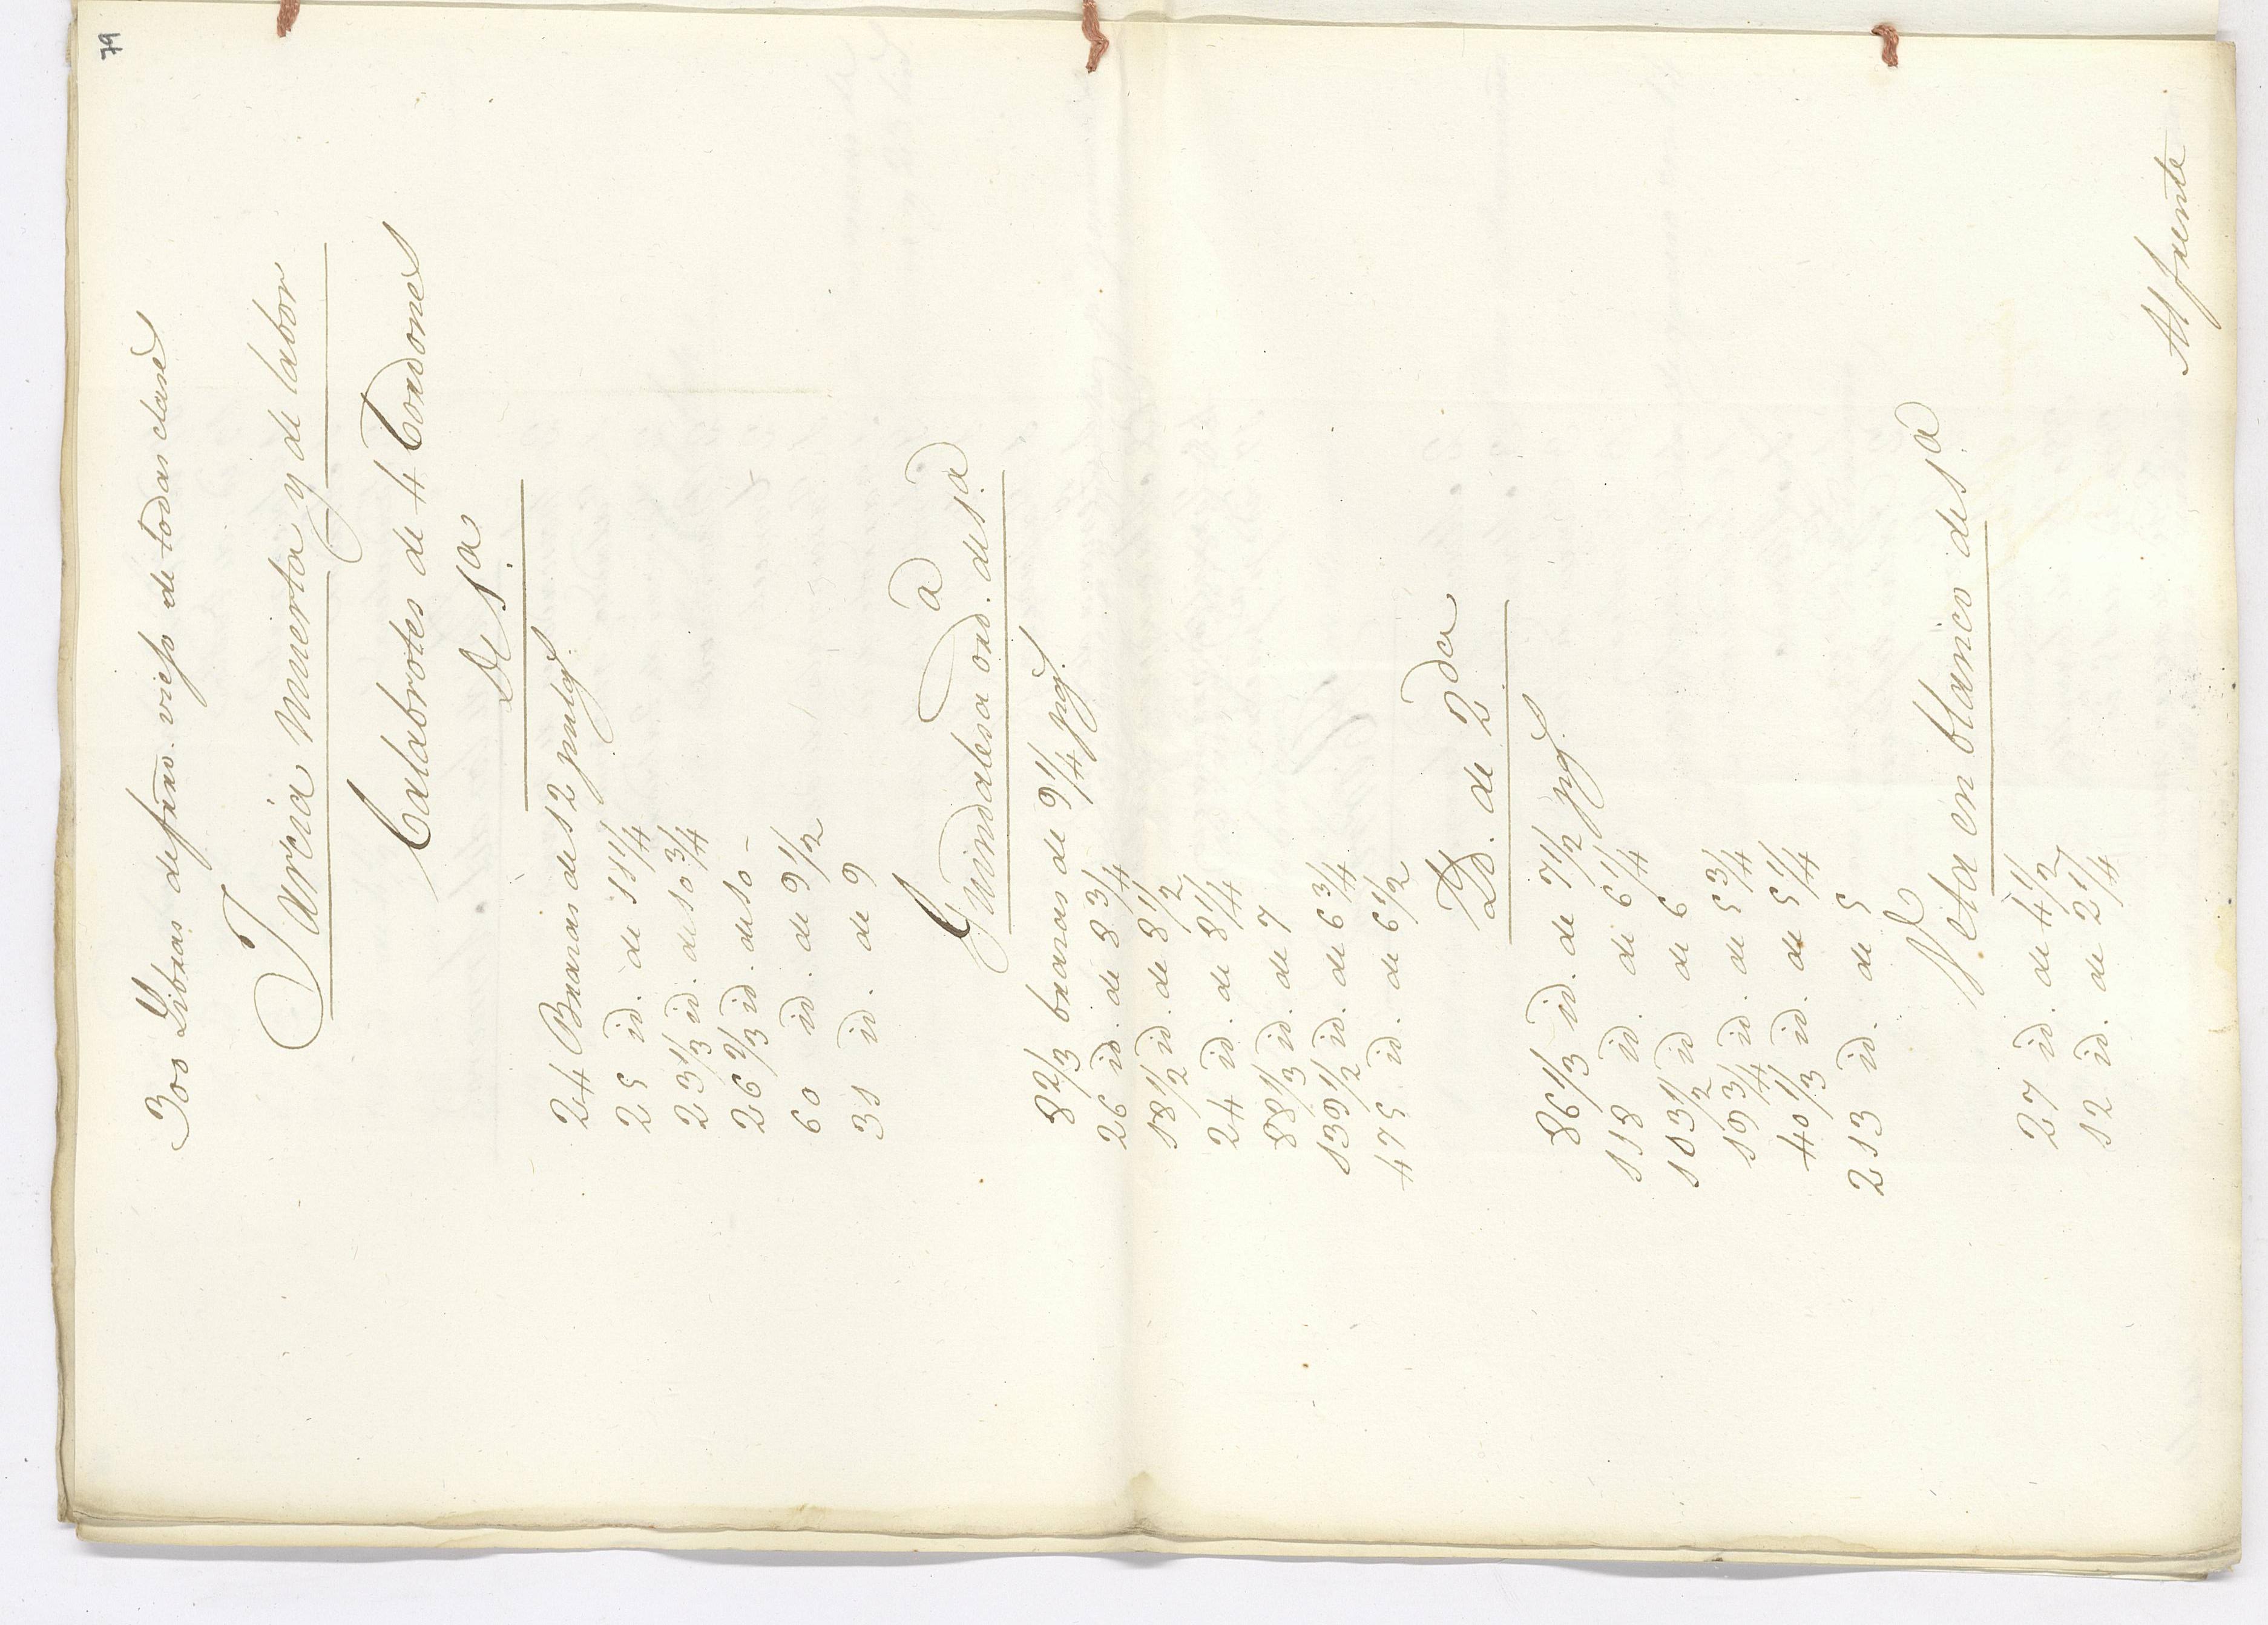 79
300 Libras de frro. viejo de todas clases
Jarcia muerta y de labor
Calabrotes de 4 Cordones
De 1a.
24 Brazas de 12 pulgs.
25 id. de 11 1/4
23 1/3 id. de 10 3/4
26 2/3 id. de 10 -
60 id. de 9 1/2
31 id. de 9
Guindalesa ord.a de 1.a
82/3 brazas de 9 1/4 pgs.
26 id. de 8 3/4
18 1/2 id. de 8 1/2
24 id. de 8 1/4
88 1/3 id. de 7
139 1/2 id. de 6 3/4
475 id. de 6 1/2
Yd. de 2da
86 1/3 id. de 7 1/2 pgs.
118 id. de 6 1/4
103 1/2 id de 6
193/4 id. de 5 3/4
40 1/3 id. de 5 1/4
213 id. de 5
Veta en blanco de 1.a
27 id. de 4 1/2
12 id. de 2 1/4
Al frente